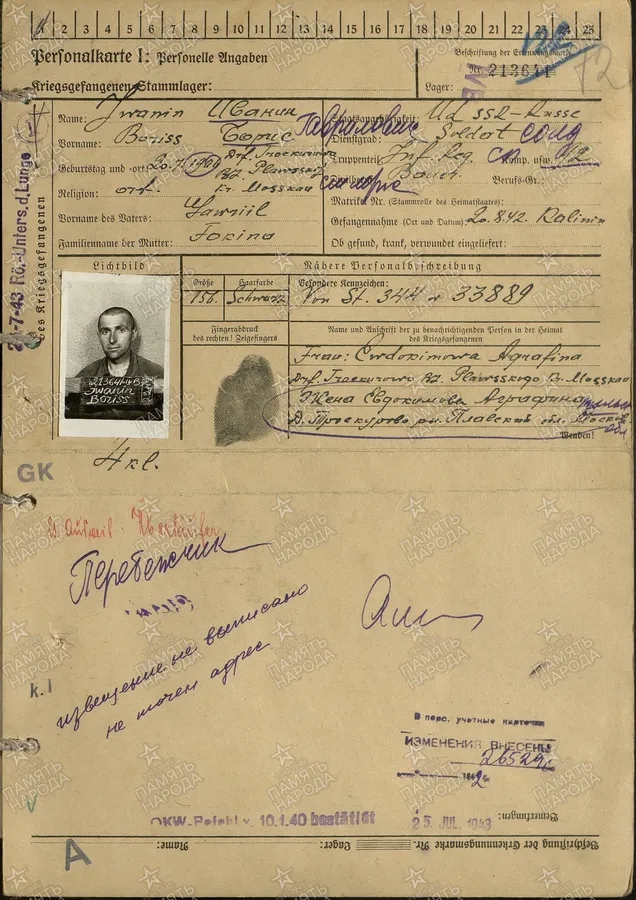 1 2 3 4 5 6 7 8 9 10 11 12 13 14 15 16 17 18 19 20 21 22 23 24 25
Personalkarte I: Personelle Angaben
Beschriftung der Erkennungsmarke
Nr. 213641
Kriegsgefangenen-Stammlager:
Lager:
Des Kriegsgefangenen
Name: Iwanin Иванин
Staatsangehörigkeit: Ud SSR-Russe
Vorname: Boriss Борис Гаврилович
Dienstgrad: Soldat солд
Geburtstag und -ort 20.7.
Drf. Troekurowo
Rd. Plawsskij
Kr. Mosskau
Truppenteil: Inf. Reg. Komp. usw.
Religion: ort.
Bauer. Berufs-Gr.:
Matrikel Nr. (Stammrolle des Heimatstaates):
Vorname des Vaters: Gawriil
Gefangennahme (Ort und Datum): 20.8.42. Kalinin
Familienname der Mutter: Fokina
Ob gesund, krank, verwundet eingeliefert:
24-7-43 Rö.-Unters. d. Lunge
Lichtbild
Nähere Personalbeschreibung
Größe
Haarfarbe
Besondere Kennzeichen:
156.
Schwarz
Von St. 344 № 33889
Fingerabdruck
des rechten! Zeigefingers
Name und Anschrift der zu benachrichtigenden Person in der Heimat
des Kriegsgefangenen
Frau: Ewdokimowa Agrafina
Drf. Troekurowo Rd. Plawsskogo Kr. Mosskau
Жена Евдокимова Аграфина
Д. Троекурово рн. Плавский обл. Москов
Wenden!
213641
Iwanin
Boriss
4 kl.
GK
Überläufer
Перебежчик
извещение не выписано
не точен адрес
k. I
В перс. учетные карточки
ИЗМЕНЕНИЯ ВНЕСЕНЫ
OKW-Befehl v. 10.1.40 bestätigt
25. JUL. 1943
Bemerkungen:
Beschriftung der Erkennungsmarke Nr.
Lager:
Name:
A
ПАМЯТЬ НАРОДА